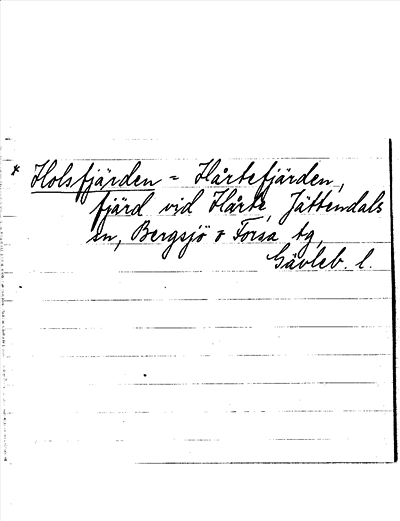 * Holsfjärden = Hårtefjärden,
fjärd vid Hårte, Jättendals
sn, Bergsjö o Forsa tg,
Gävleb. l.